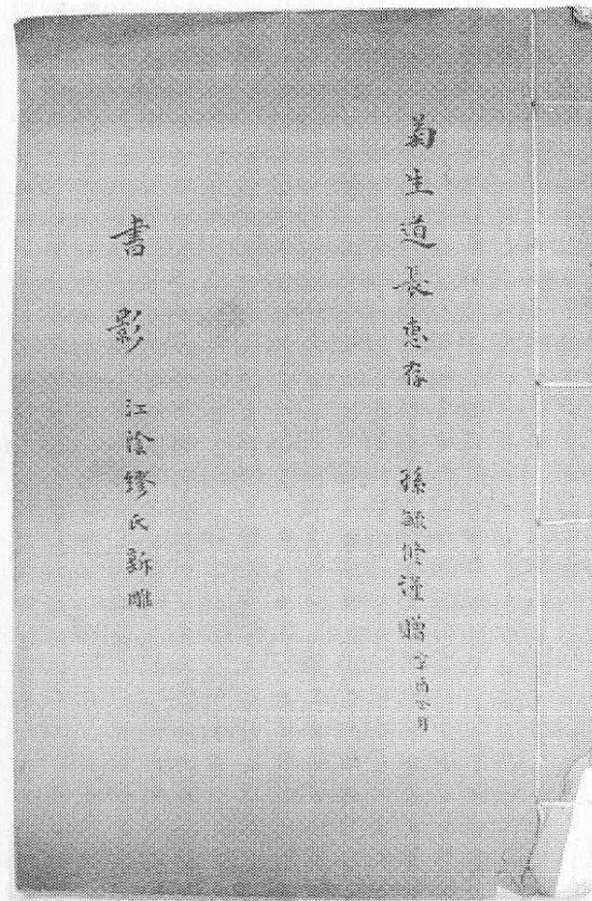 菊生道長惠存　孫毓修謹贈 辛酉六月
書影 江陰繆氏新雕